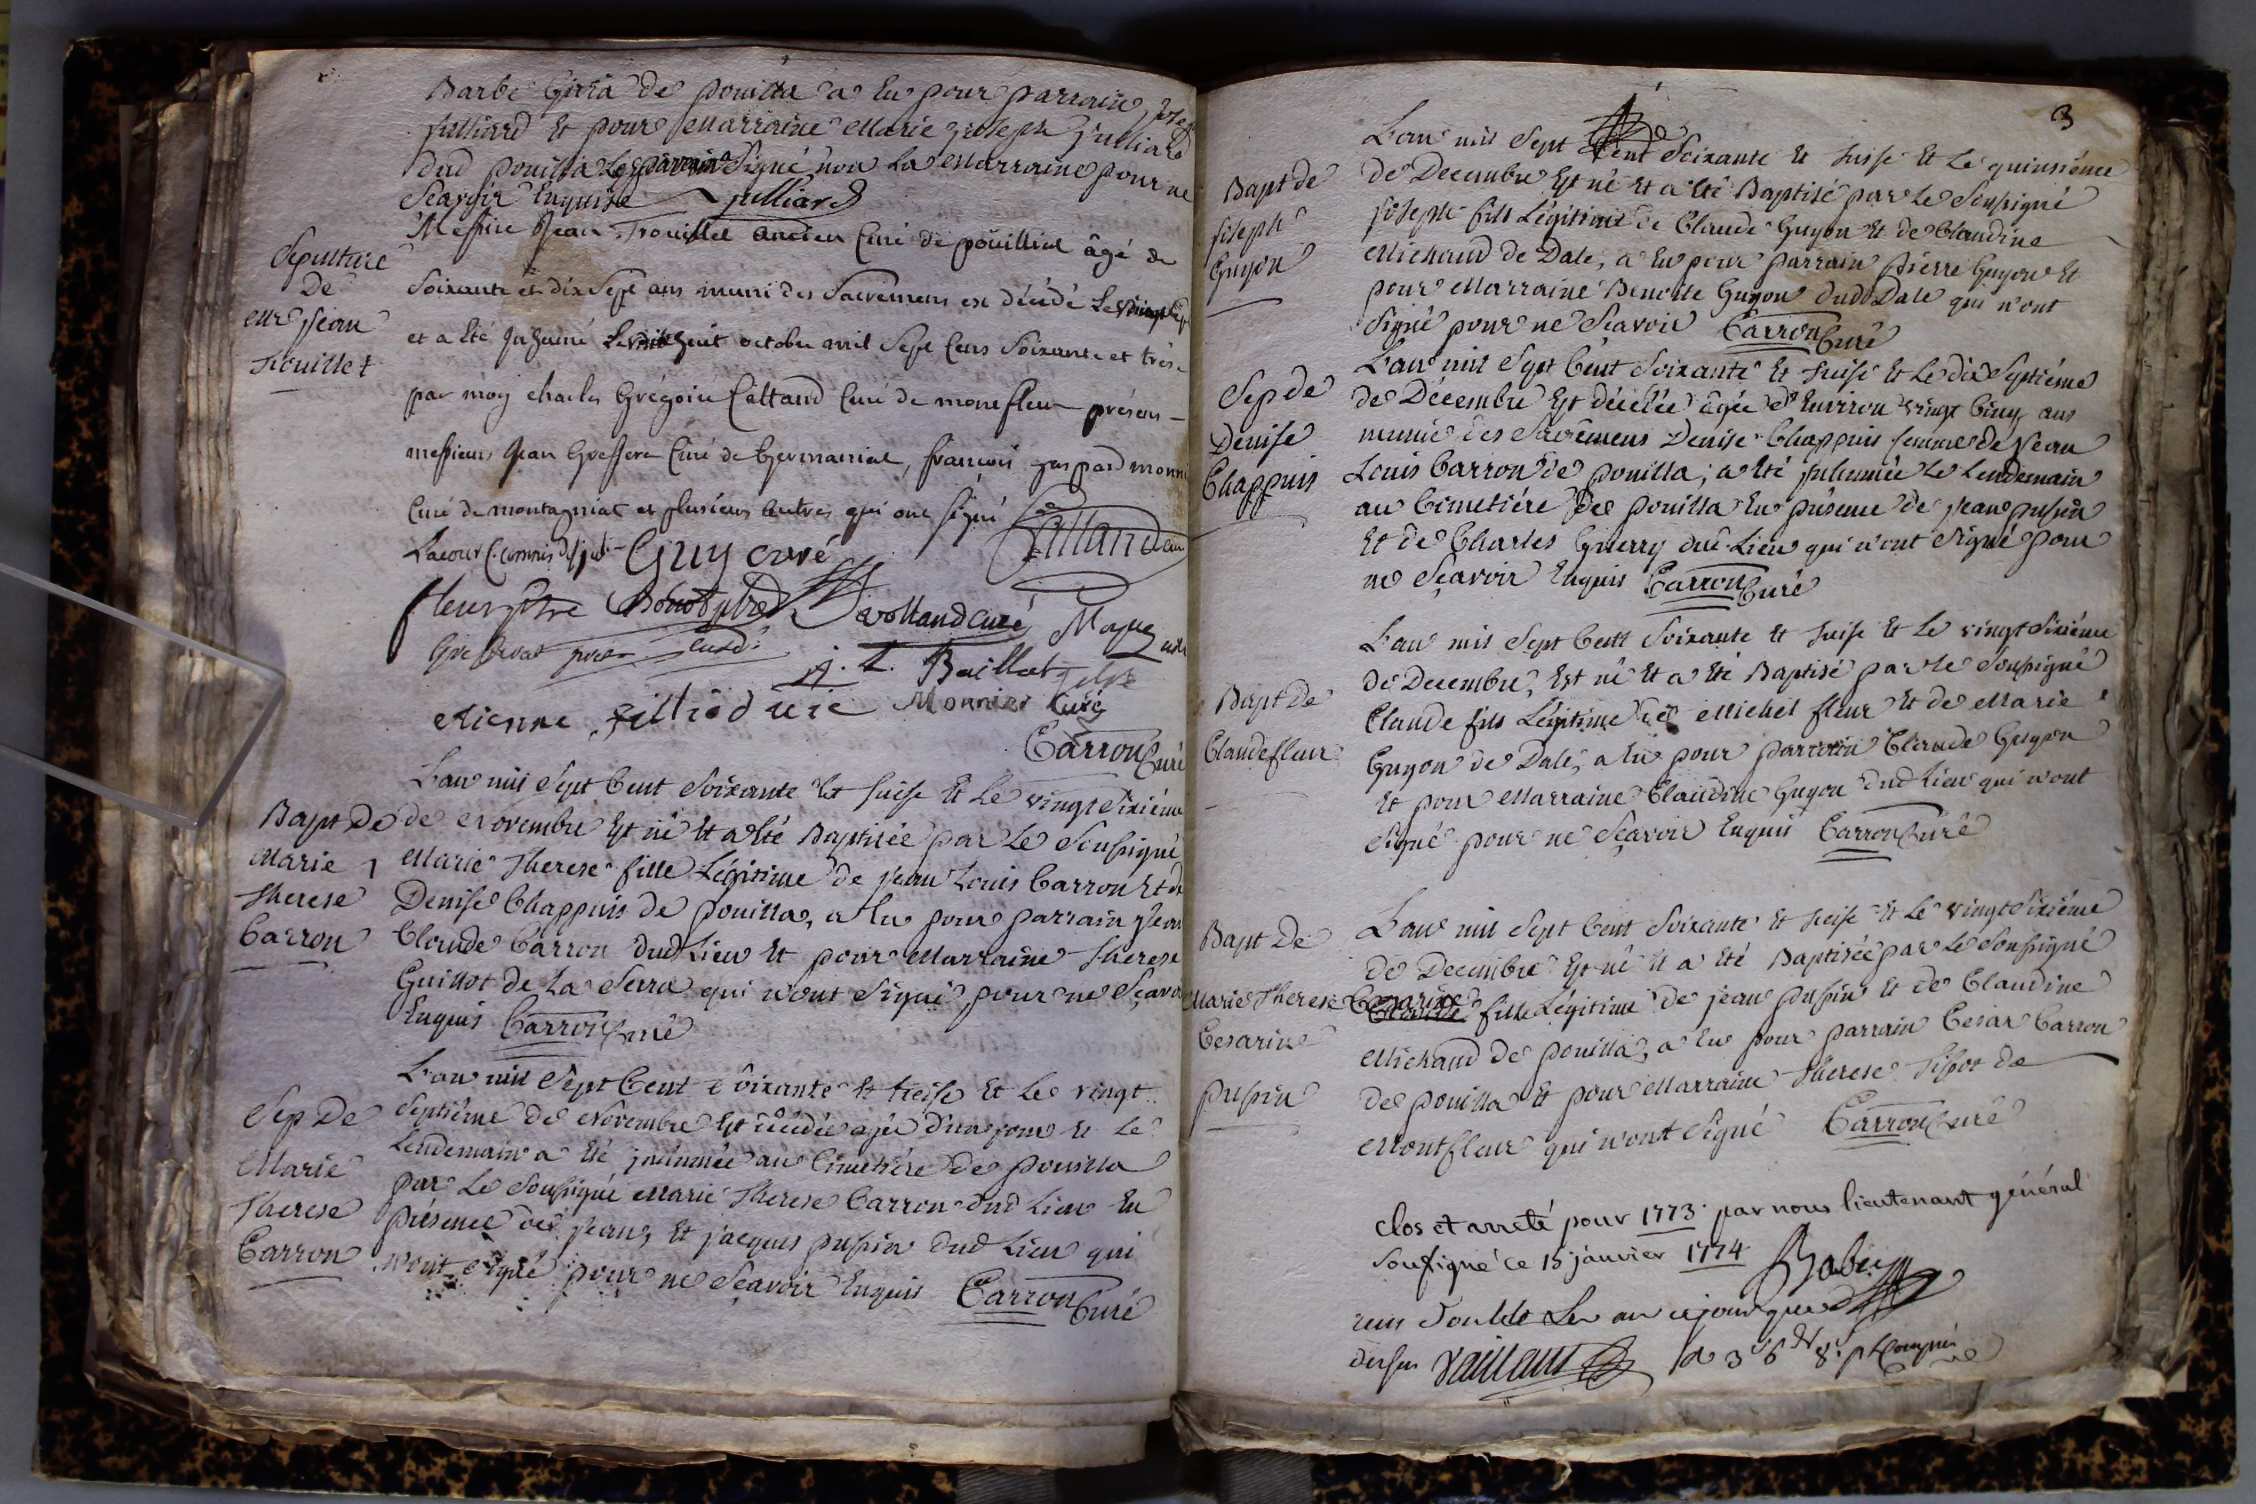 Barbe Girra de pouilla a Eu pour parrain Joseph
Julliard Et pour Marraine Marie Joseph Julliard
dud pouilla Le parrain Signé non La Marraine pour ne
Scavoir Enquise Julliard
Sepulture
De
Mre Jean
Trouillet
Messire Jean Trouillet ancien Curé de pouillial âgé de
Soixante et dix Sept ans muni des Sacremens est décédé Le vingt Sept
et a Eté Inhumé Le vint huit octobre mil Sept Cens Soixante et trese
par moy charles Grégoire Cattand Curé de monefleur présens
messieurs Jean Gressere Curé de Germaniat, françois gaspard monnier
Curé de montagniat et plusieurs autres qui ont signé
Lacour C. commis Guy curé Cattand curé
fleur ptre Vollandcuré Maque curé
J. L. Baillat
etienne filliod vic Monnier Curé
Carron Curé
Bapt De
Marie
Therese
Carron
L'an mil Sept Cent Soixante Et treise Et Le vingt Sixiéme
de Novembre Est né Et a Eté Baptisée par Le Soussigné
Marie Therese fille Légitime de Jean Louis Carron Et de
Denise Chappuis de pouilla, a Eu pour parrain Jean
Claude Carron dud Lieu Et pour Marraine Therese
Guillot de La Serra qui n'ont Signé pour ne Sçavoir
Enquis Carron Curé
Sep De
Marie
Therese
Carron
L'an mil Sept Cent Soixante Et treise Et Le vingt
Septiéme de Novembre Est décédée agée d'un jour Et Le
Lendemain a Eté inhumée au Cimetiére de pouilla
par Le Soussigné Marie Therese Carron dud Lieu En
presence de Jean, Et jacques pupin dud Lieu qui
n'ont Signé pour ne Sçavoir Enquis Carron Curé
3
Bapt de
Joseph
Guyon
L'an mil Sept Cent Soixante Et treise Et Le quinsiéme
de Decembre Est né Et a Eté Baptisé par Le Soussigné
Joseph fils Légitime de Claude Guyon Et de Claudine
Michaud de Dale, a Eu pour parrain pierre Guyon Et
pour Marraine Benoite Guyon dud Dale qui n'ont
Signé pour ne Scavoir Carron Curé
Sep de
Denise
Chappuis
L'an mil Sept Cent Soixante Et treise Et Le dix Septiéme
de Décembre Est décédée âgée d'Environ vingt Cinq ans
munie des Sacrémens Denise Chappuis femme de Jean
Louis Carron de pouilla, a Eté Inhumée Le Lendemain
au Cimetiére de pouilla En présence de Jean pupin
Et de Charles Guerry dud. Lieu qui n'ont Signé pour
ne Sçavoir Enquis Carron Curé
Bapt De
Claude fleur
L'an mil Sept Cent Soixante Et treise Et Le vingt Sixiéme
de Decembre, Est né Et a Eté Baptisé par Le Soussigné
Claude fils Légitime de Michel fleur Et de Marie
Guyon de Dale, a Eu pour parrain Claude Guyon
Et pour Marraine Claudine Guyon dud Lieu qui n'ont
Signé pour ne Sçavoir Enquis Carron Curé
Bapt De
Marie Therese
Cesarine
pupin
L'an mil Sept Cent Soixante Et treise Et Le vingt Sixiéme
de Decembre Est né Et a Eté Baptisée par Le Soussigné
Cesarine fille Légitime de jean pupin Et de Claudine
Michaud de pouilla, a Eu pour parrain Cesar Carron
de pouilla Et pour Marraine Therese Tissot de
Montfleur qui n'ont Signé Carron Curé
clos et arreté pour 1773. par nous lieutenant général
soussigné ce 15 janvier 1774
reçu double Les an et jour que
dessus Vaillant